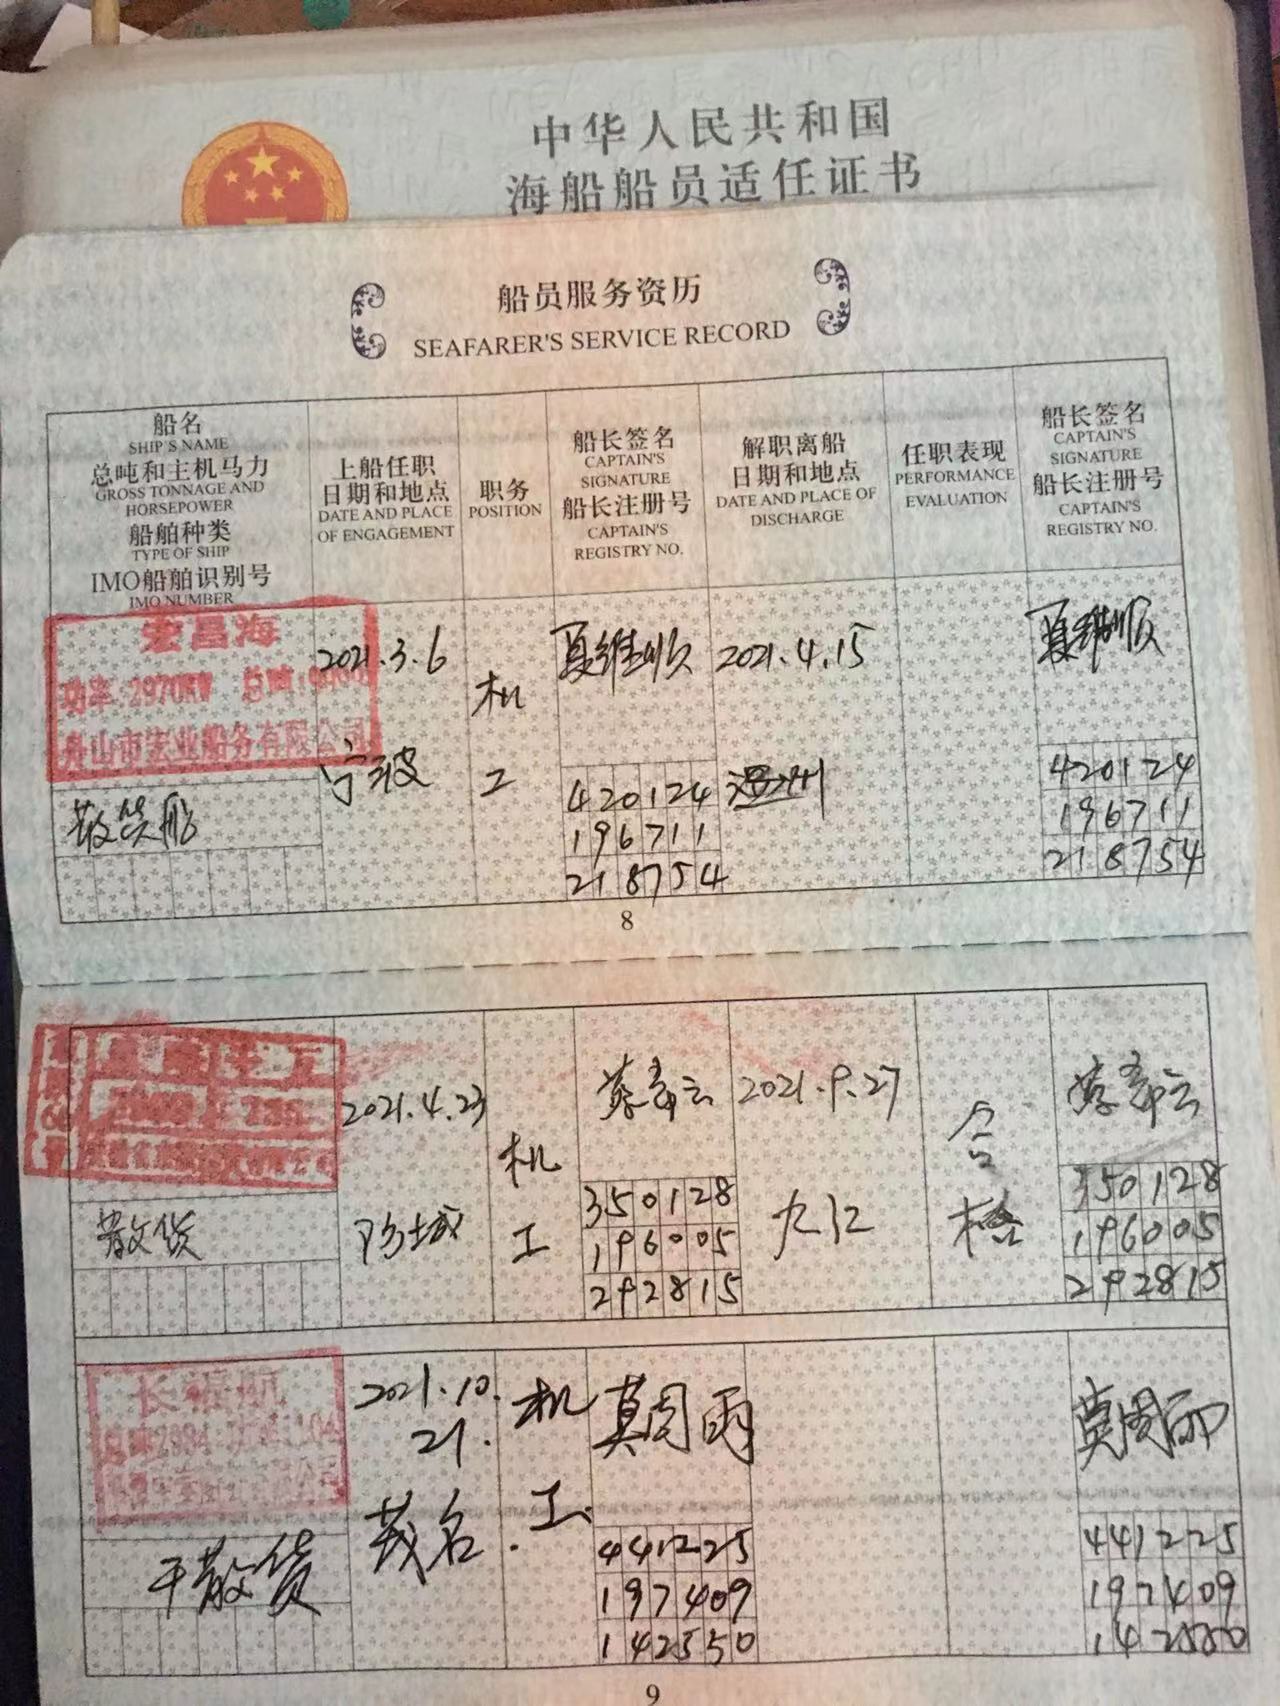 中华人民共和国
海船船员适任证书
船员服务资历
SEAFARER'S SERVICE RECORD
船名
SHIP'S NAME
总吨和主机马力
GROSS TONNAGE AND
HORSEPOWER
船舶种类
TYPE OF SHIP
IMO船舶识别号
IMO NUMBER
上船任职
日期和地点
DATE AND PLACE
OF ENGAGEMENT
职务
POSITION
船长签名
CAPTAIN'S
SIGNATURE
船长注册号
CAPTAIN'S
REGISTRY NO.
解职离船
日期和地点
DATE AND PLACE OF
DISCHARGE
任职表现
PERFORMANCE
EVALUATION
船长签名
CAPTAIN'S
SIGNATURE
船长注册号
CAPTAIN'S
REGISTRY NO.
宏昌海
功率:2970KW 总吨:
舟山市宏业船务有限公司
散货船
2021.3.6
宁波
机
工
夏维顺
420124
196711
218754
2021.4.15
温州
夏维顺
420124
196711
218754
8
散货
2021.4.23
防城
机
工
蔡寿云
350128
196005
292815
2021.9.27
九江
合
格
蔡寿云
350128
196005
292815
长福航
总吨2984
干散货
2021.10.
21.
茂名
机
工
莫周雨
441225
197409
142550
莫周雨
441225
197409
142550
9